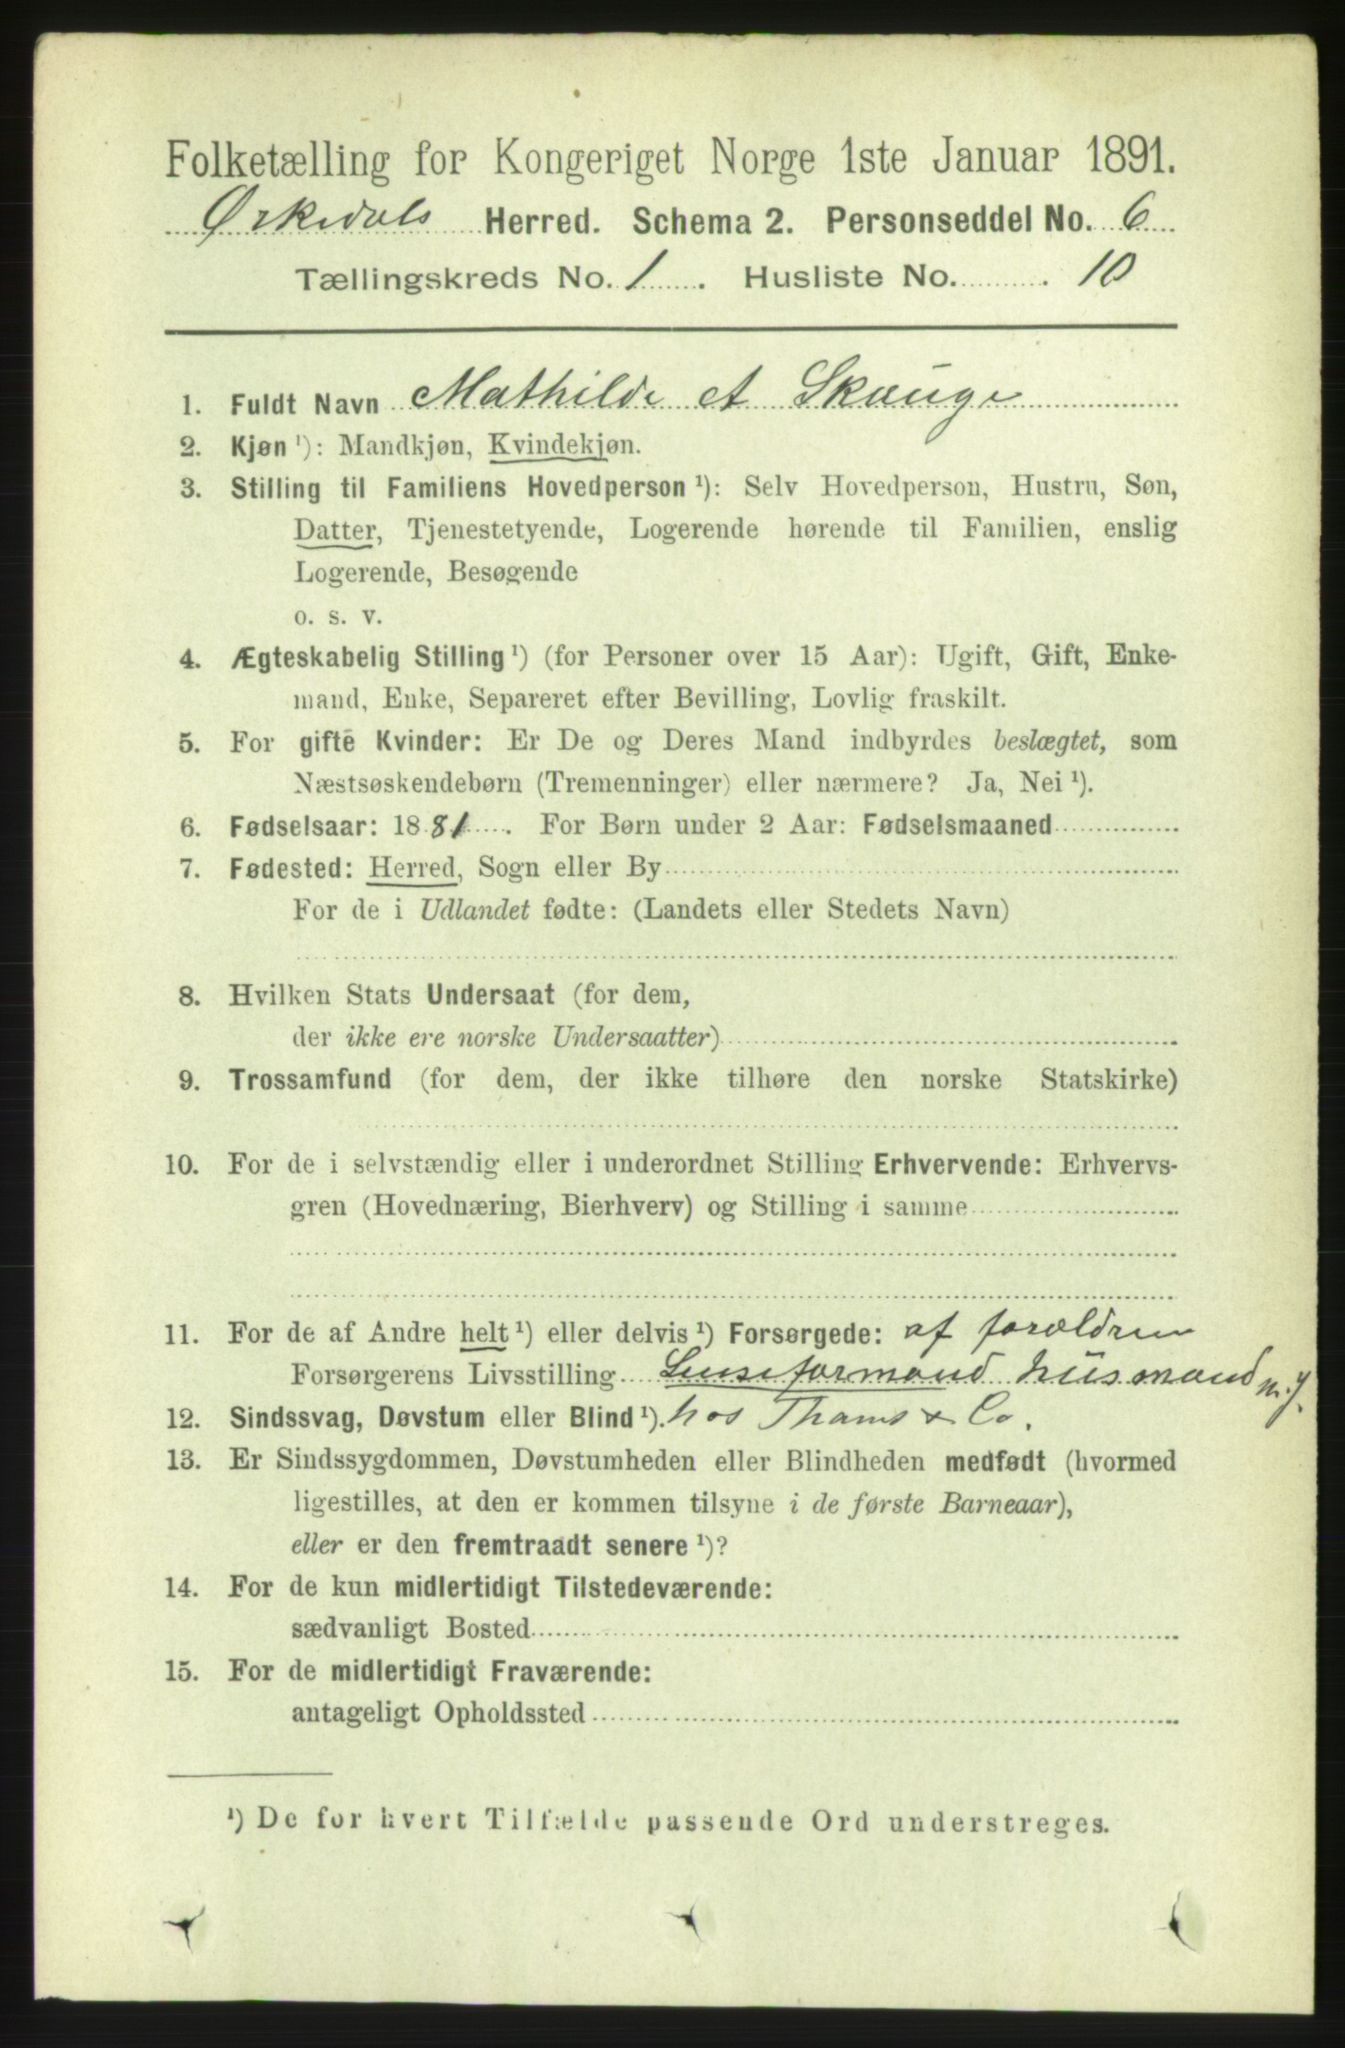 Folketælling for Kongeriget Norge 1ste Januar 1891.
Ørkedals Herred. Schema 2. Personseddel No. 6
Tællingskreds No. 1. Husliste No. 10
1. Fuldt Navn Mathilde A Skauge
2. Kjøn ¹): Mandkjøn, Kvindekjøn.
3. Stilling til Familiens Hovedperson ¹): Selv Hovedperson, Hustru, Søn,
Datter, Tjenestetyende, Logerende hørende til Familien, enslig
Logerende, Besøgende
o. s. v.
4. Ægteskabelig Stilling ¹) (for Personer over 15 Aar): Ugift, Gift, Enke-
mand, Enke, Separeret efter Bevilling, Lovlig fraskilt.
5. For gifte Kvinder: Er De og Deres Mand indbyrdes beslægtet, som
Næstsøskendebørn (Tremenninger) eller nærmere? Ja, Nei ¹).
6. Fødselsaar: 1881. For Børn under 2 Aar: Fødselsmaaned
7. Fødested: Herred, Sogn eller By
For de i Udlandet fødte: (Landets eller Stedets Navn)
8. Hvilken Stats Undersaat (for dem,
der ikke ere norske Undersaatter)
9. Trossamfund (for dem, der ikke tilhøre den norske Statskirke)
10. For de i selvstændig eller i underordnet Stilling Erhvervende: Erhvervs-
gren (Hovednæring, Bierhverv) og Stilling i samme
11. For de af Andre helt ¹) eller delvis ¹) Forsørgede: af forældren
Forsørgerens Livsstilling formand Husmand m. j.
12. Sindssvag, Døvstum eller Blind ¹). hos Thams & Co.
13. Er Sindssygdommen, Døvstumheden eller Blindheden medfødt (hvormed
ligestilles, at den er kommen tilsyne i de første Barneaar),
eller er den fremtraadt senere ¹)?
14. For de kun midlertidigt Tilstedeværende:
sædvanligt Bosted
15. For de midlertidigt Fraværende:
antageligt Opholdssted
¹) De for hvert Tilfælde passende Ord understreges.